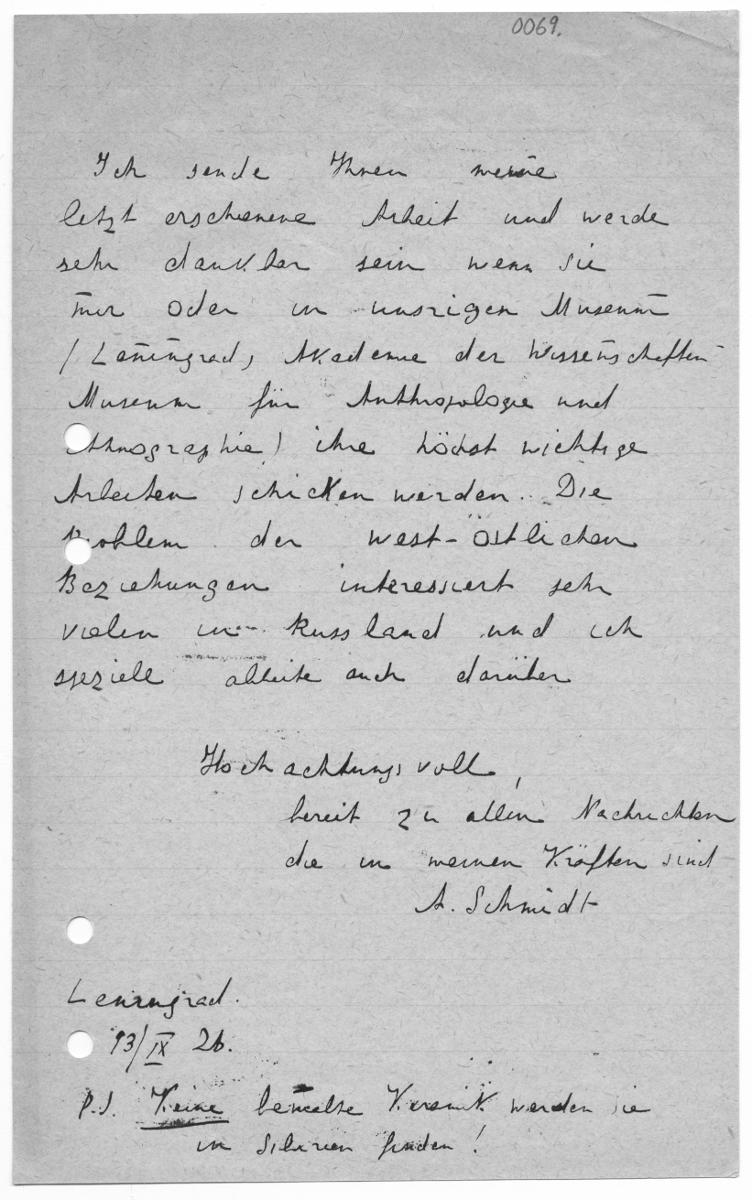 0069.
Ich sende Ihnen meine
letzt erschienene Arbeit und werde
sehr dankbar sein wenn Sie
mir oder in unsrigen Museum
/ Leningrad, Akademie der Wissenschaften
Museum für Anthropologie und
Ethnographie / ihre höchst wichtige
Arbeiten schicken werden. Die
Problem der west-östlichen
Beziehungen interessiert sehr
vielen in Russland und ich
speziell arbeite auch darüber
Hochachtungsvoll,
bereit zu allen Nachrichten
die in meinen Kräften sind
A. Schmidt
Leningrad.
13/IX 26.
P.S. Keine bemalte Keramik werden sie
in Sibirien finden!